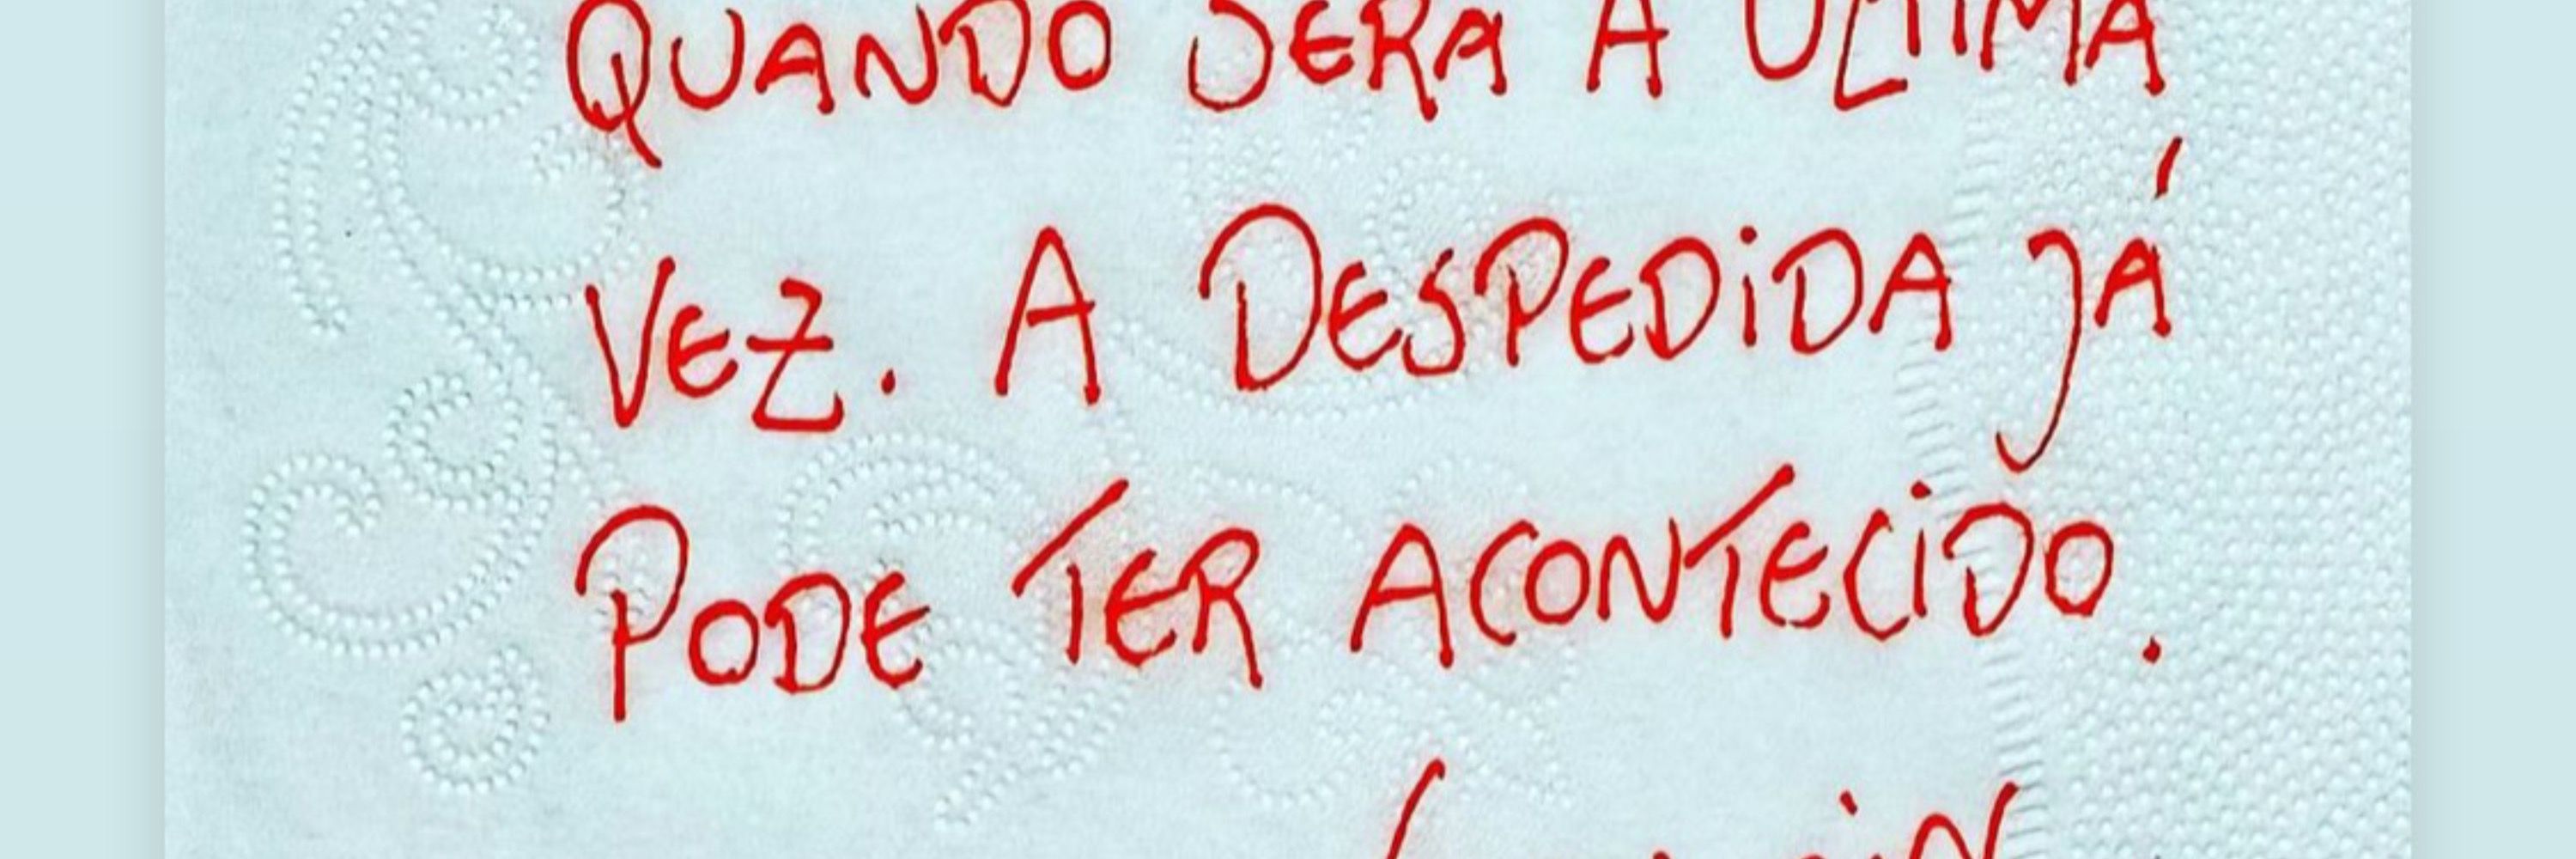 QUANDO SERA A ULTIMA
VEZ. A DESPEDIDA JÁ
PODE TER ACONTECIDO.